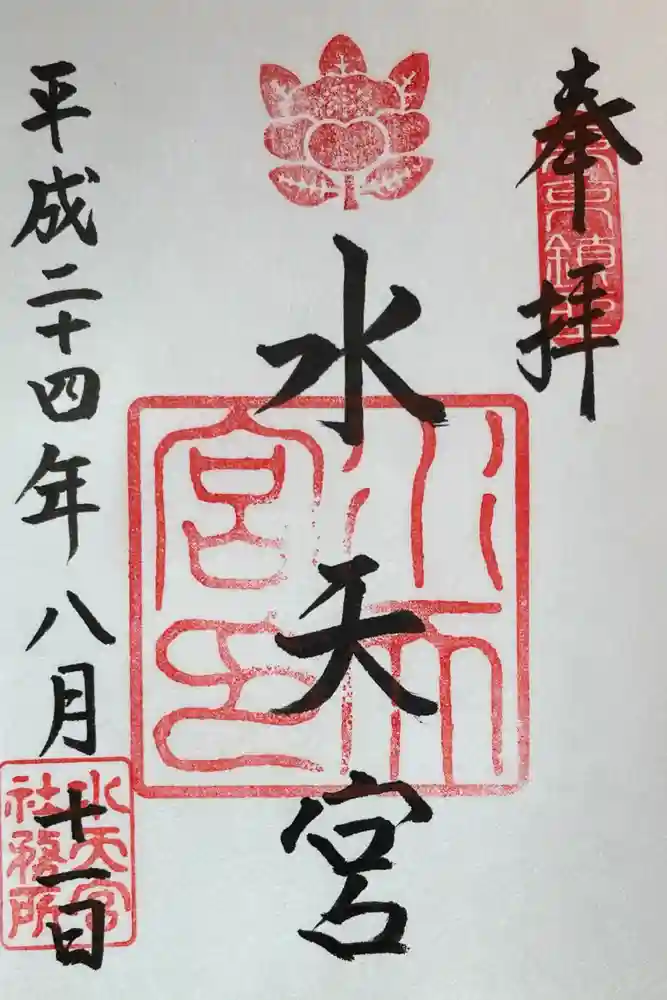 奉拝
水天宮
平成二十四年八月十一日
水天宮
社務所
水天宮印